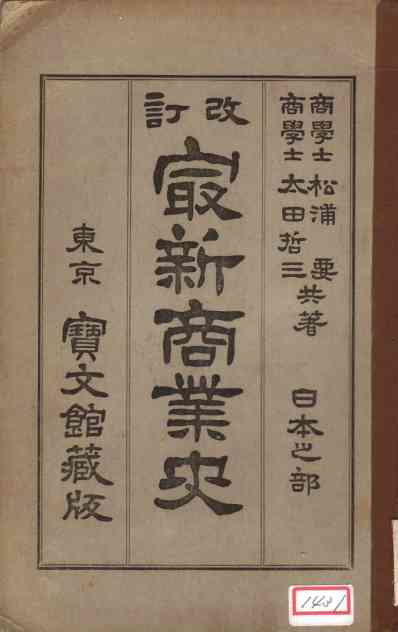 商學士 松浦 要
商學士 太田哲三
共著
日本之部
改訂
最新商業史
東京 寶文館藏版
1431